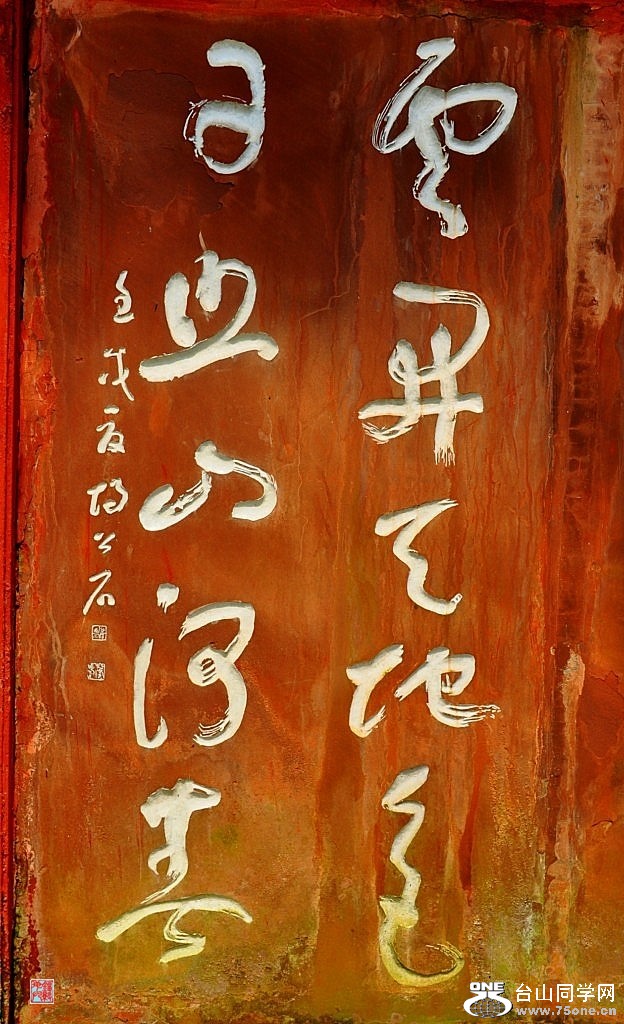 雲開天地色
日照山河春
壬戌夏胡公石
ONE
台山同学网
www.75one.cn